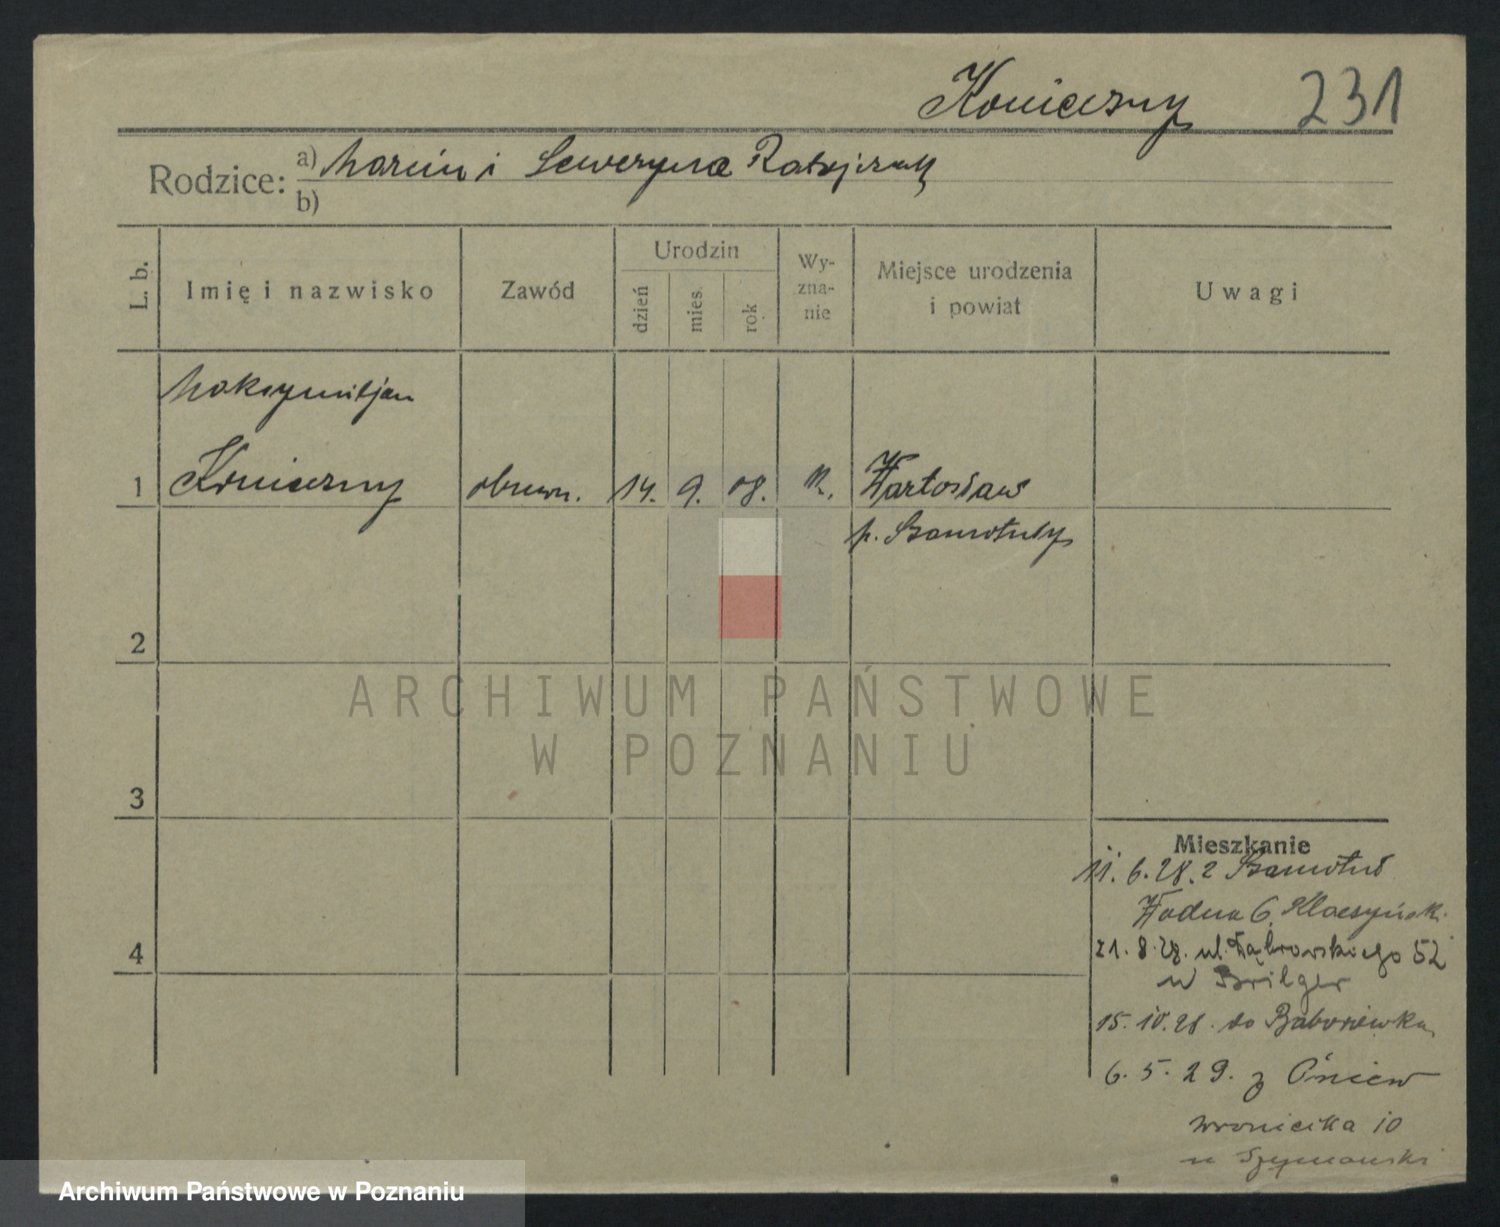 Konieczny 231
Rodzice: a) Marcin i Seweryna Ratajczak
b)
L. b.
Imię i nazwisko
Zawód
Urodzin
dzień
mies.
rok
Wy-
zna-
nie
Miejsce urodzenia
i powiat
Uwagi
Maksymiljan
1 Konieczny 14. 9. 08. Wartosław
p. Szamotuły
2
3
4
ARCHIWUM PAŃSTWOWE
W POZNANIU
Mieszkanie
11. 6. 28. z Szamotuł
Wodna 6 Kłaczyński
21. 8. 28. ul. Dąbrowskiego 52
u Brilger
15. 10. 28. do Baborówka
6. 5. 29. z
Wroniecka 10
u Szymański
Archiwum Państwowe w Poznaniu